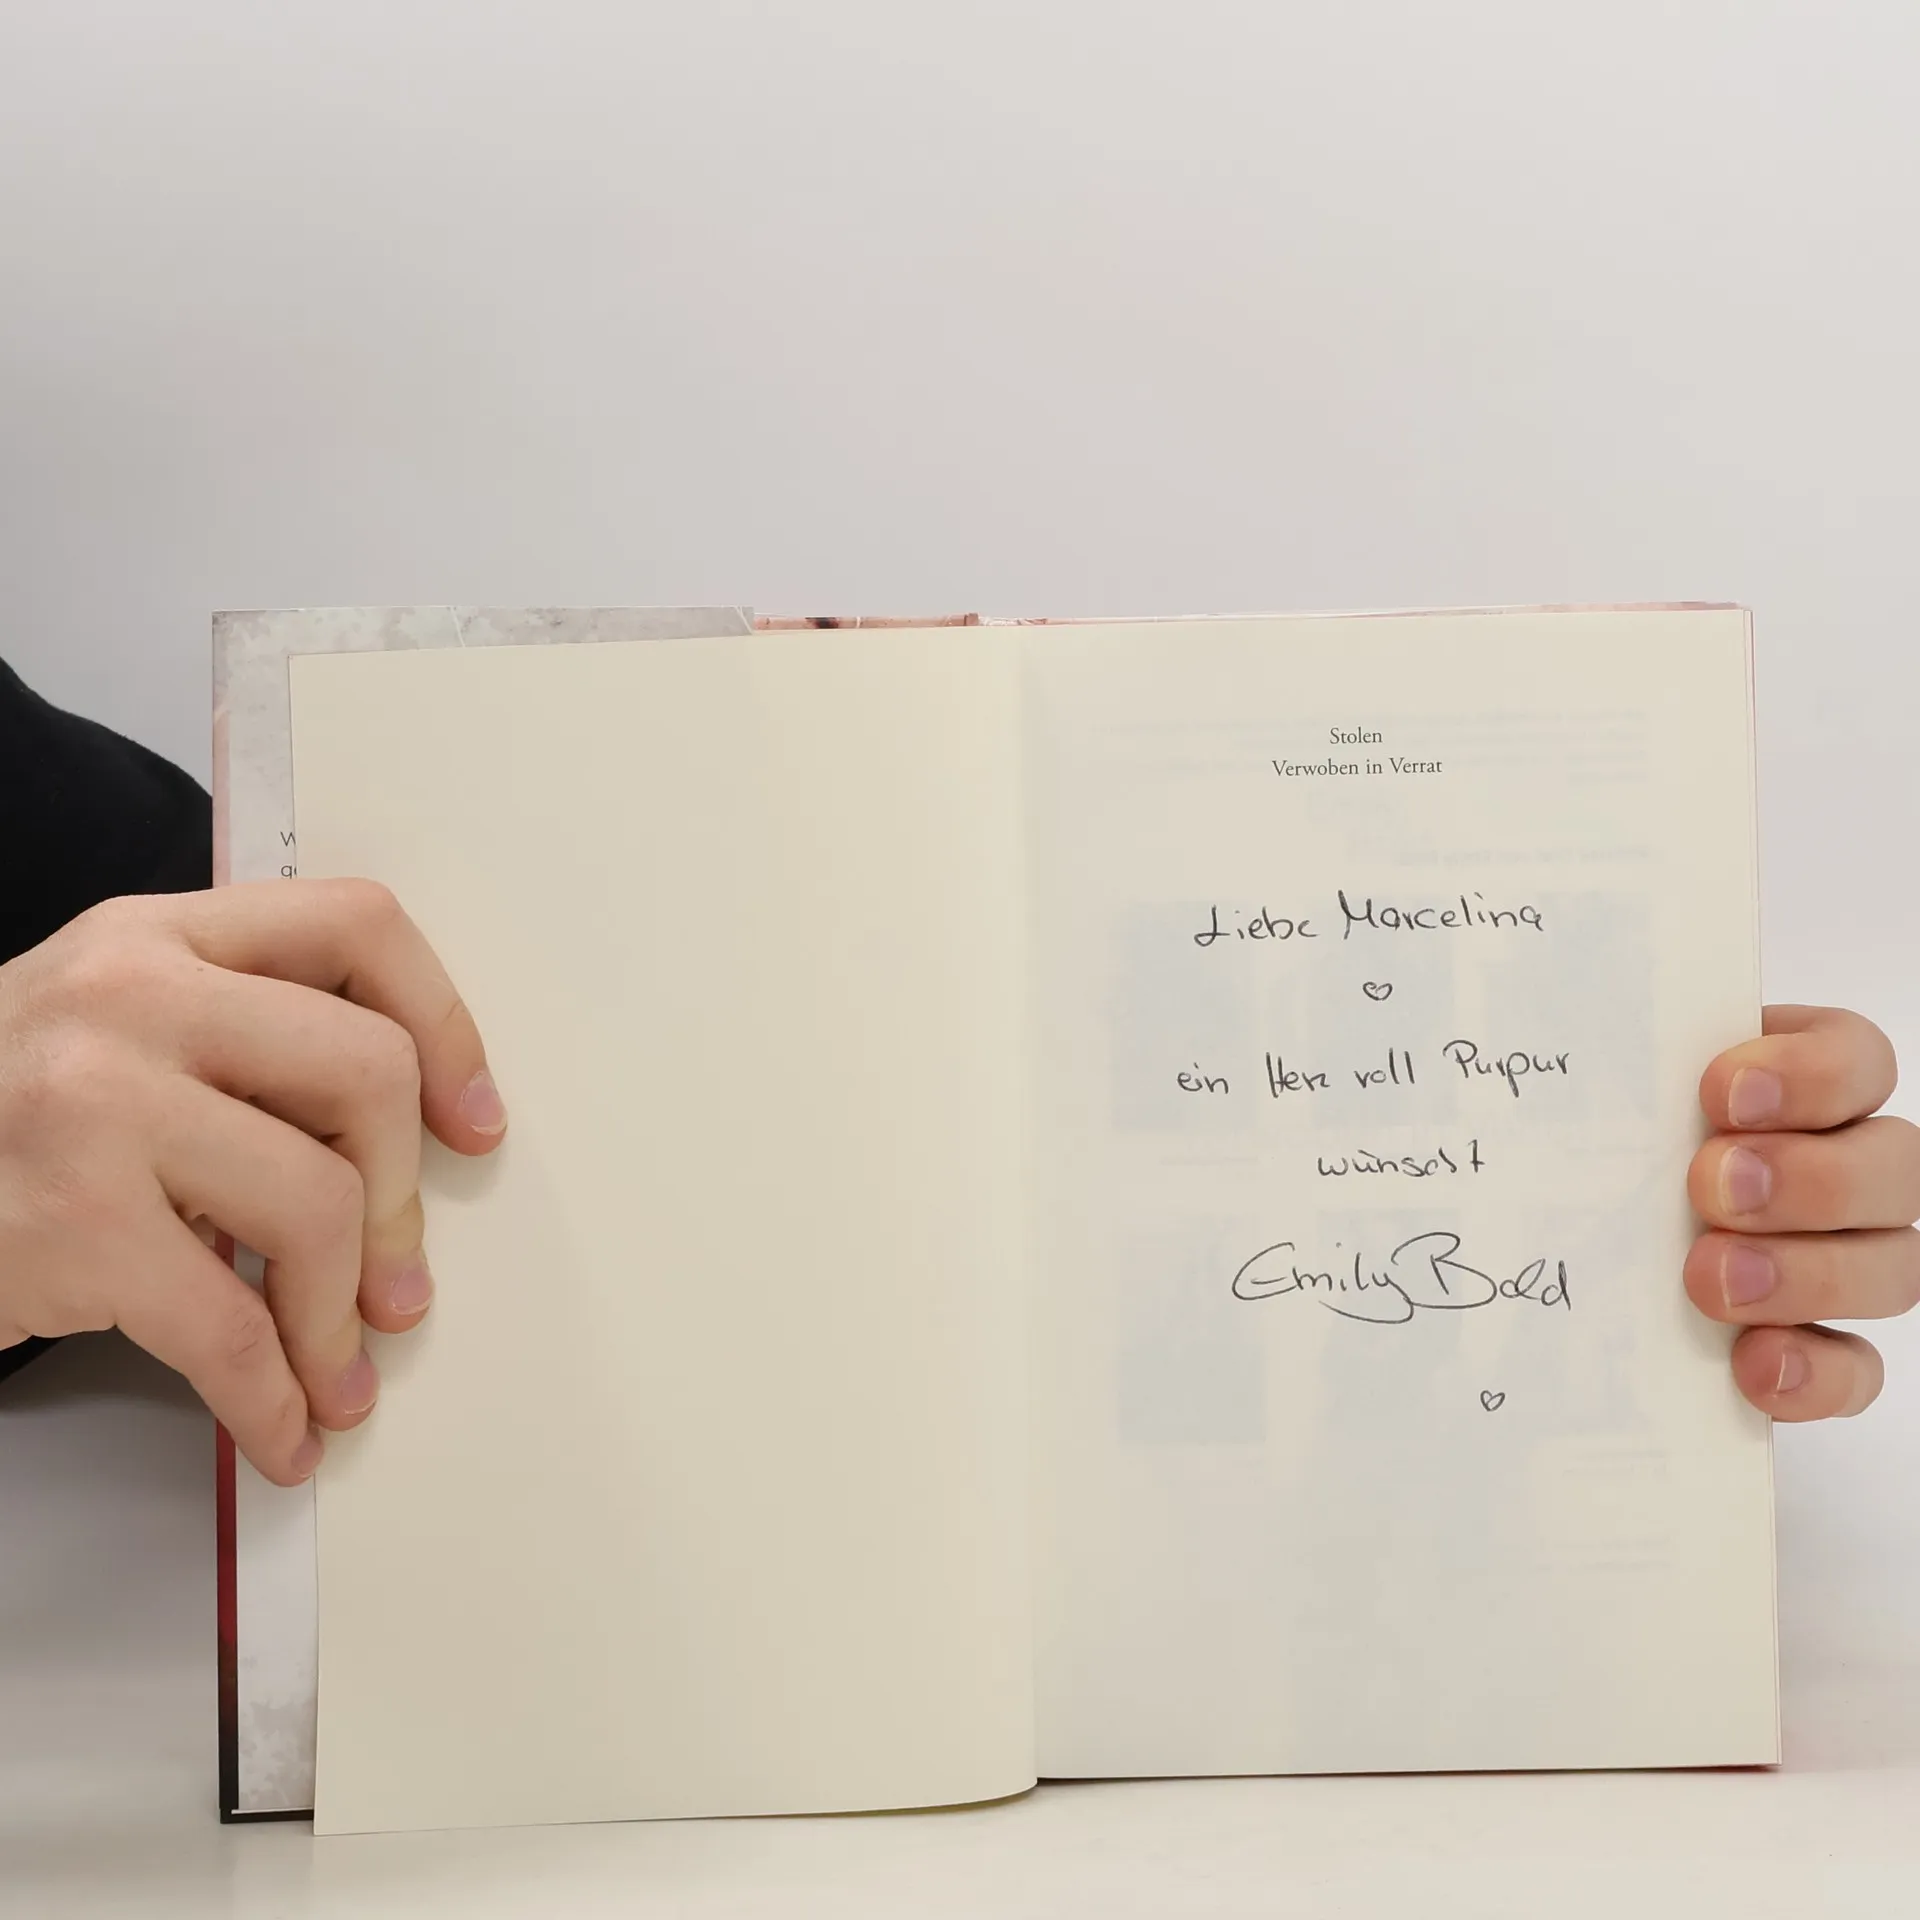 W
ge
Stolen
Verwoben in Verrat
Liebe Marcelina
♡
ein Herz voll Purpur
wünscht
Emily Bold
♡